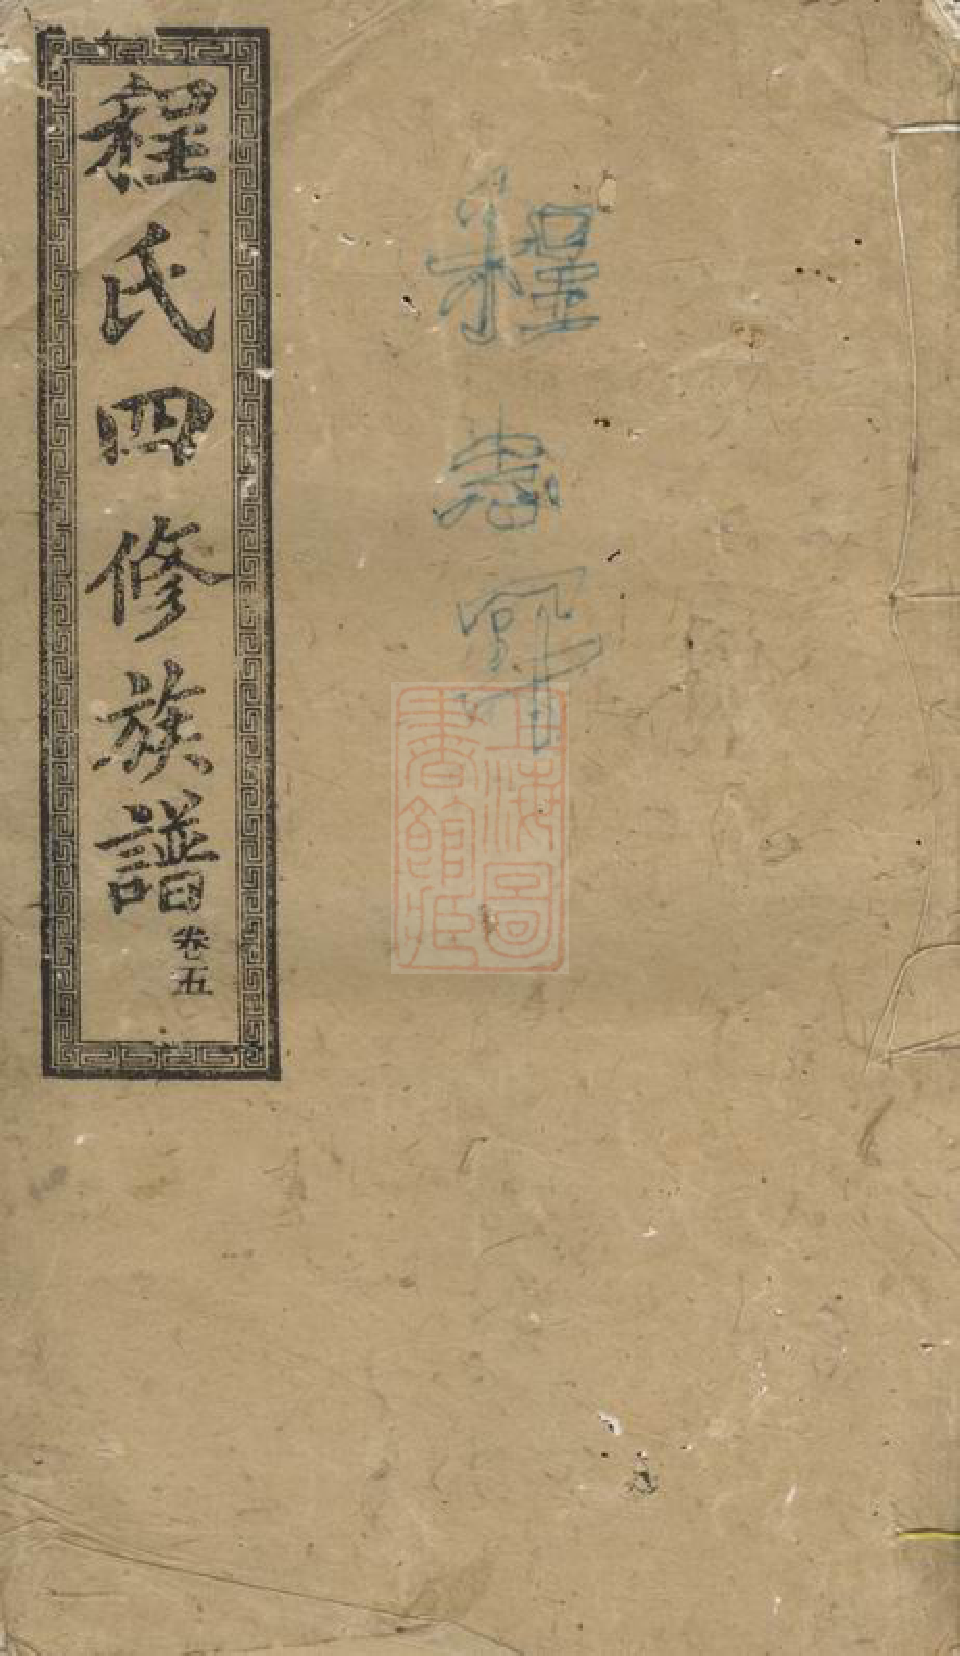 程氏四修族譜
卷五
程忠軍
上海圖
書館藏